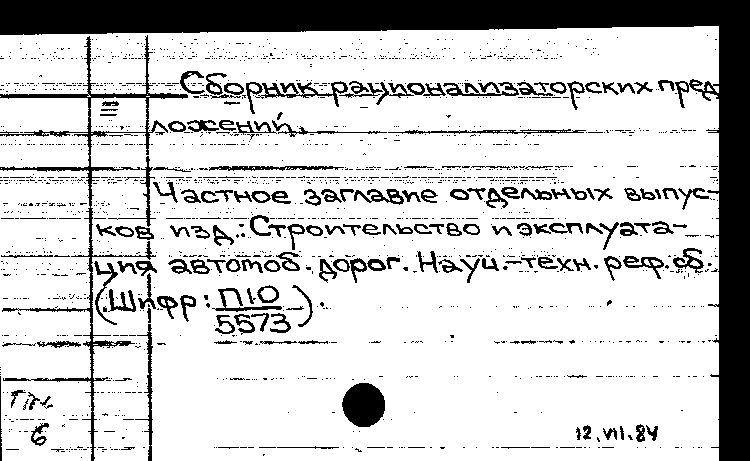 Сборник рационализаторских пред
ложений.
Частное заглавие отдельных выпус-
ков изд.: Строительство и эксплуата-
ция автомоб. дорог. Науч.-техн. реф. сб.
(Шифр: П10/5573).
6
12.VII.84